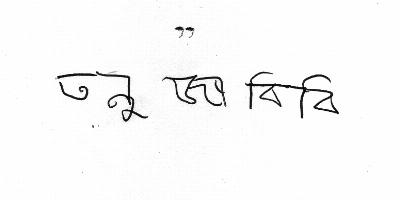 ”
তনু জা বিবি